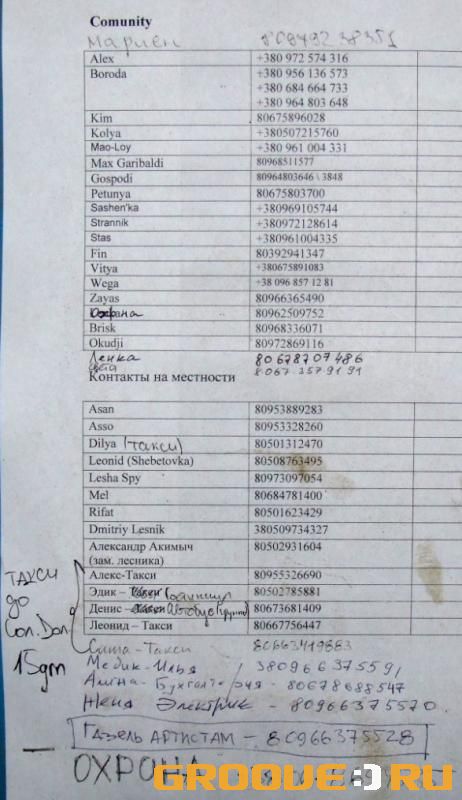 Comunity
Мариен 8C9792 38351
Alex +380 972 574 316
Boroda +380 956 136 573
+380 684 664 733
+380 964 803 648
Kim 80675896028
Kolya +380507215760
Mao-Loy +380 961 004 331
Max Garibaldi 80968511577
Gospodi 80964803646 \ 3848
Petunya 80675803700
Sashen'ka +380969105744
Strannik +380972128614
Stas +380961004335
Fin 80392941347
Vitya +380675891083
Wega +38 096 857 12 81
Zayas 80966365490
Охрана 80962509752
Brisk 80968336071
Okudji 80972869116
Ленка 80678707486
8067 357 91 91
Контакты на местности
Asan 80953889283
Asso 80953328260
Dilya (такси) 80501312470
Leonid (Shebetovka) 80508763495
Lesha Spy 80973097054
Mel 80684781400
Rifat 80501623429
Dmitriy Lesnik 380509734327
Александр Акимыч 80502931604
(зам. лесника)
Алекс-Такси 80955326690
Эдик – 80502785881
Денис – Такси Автобус 80673681409
Леонид – Такси 80667756447
ТАКСИ
до
Сол. Дол.
15
Саша-Такси 8C663419883
Медик-Илья 380966375591
Амина - Бухгалтерия - 80678688547
Женя Электрик - 80966375570
ГАЗЕЛЬ АРТИСТАМ - 80966375528
ОХРОНА
GROOVE.RU